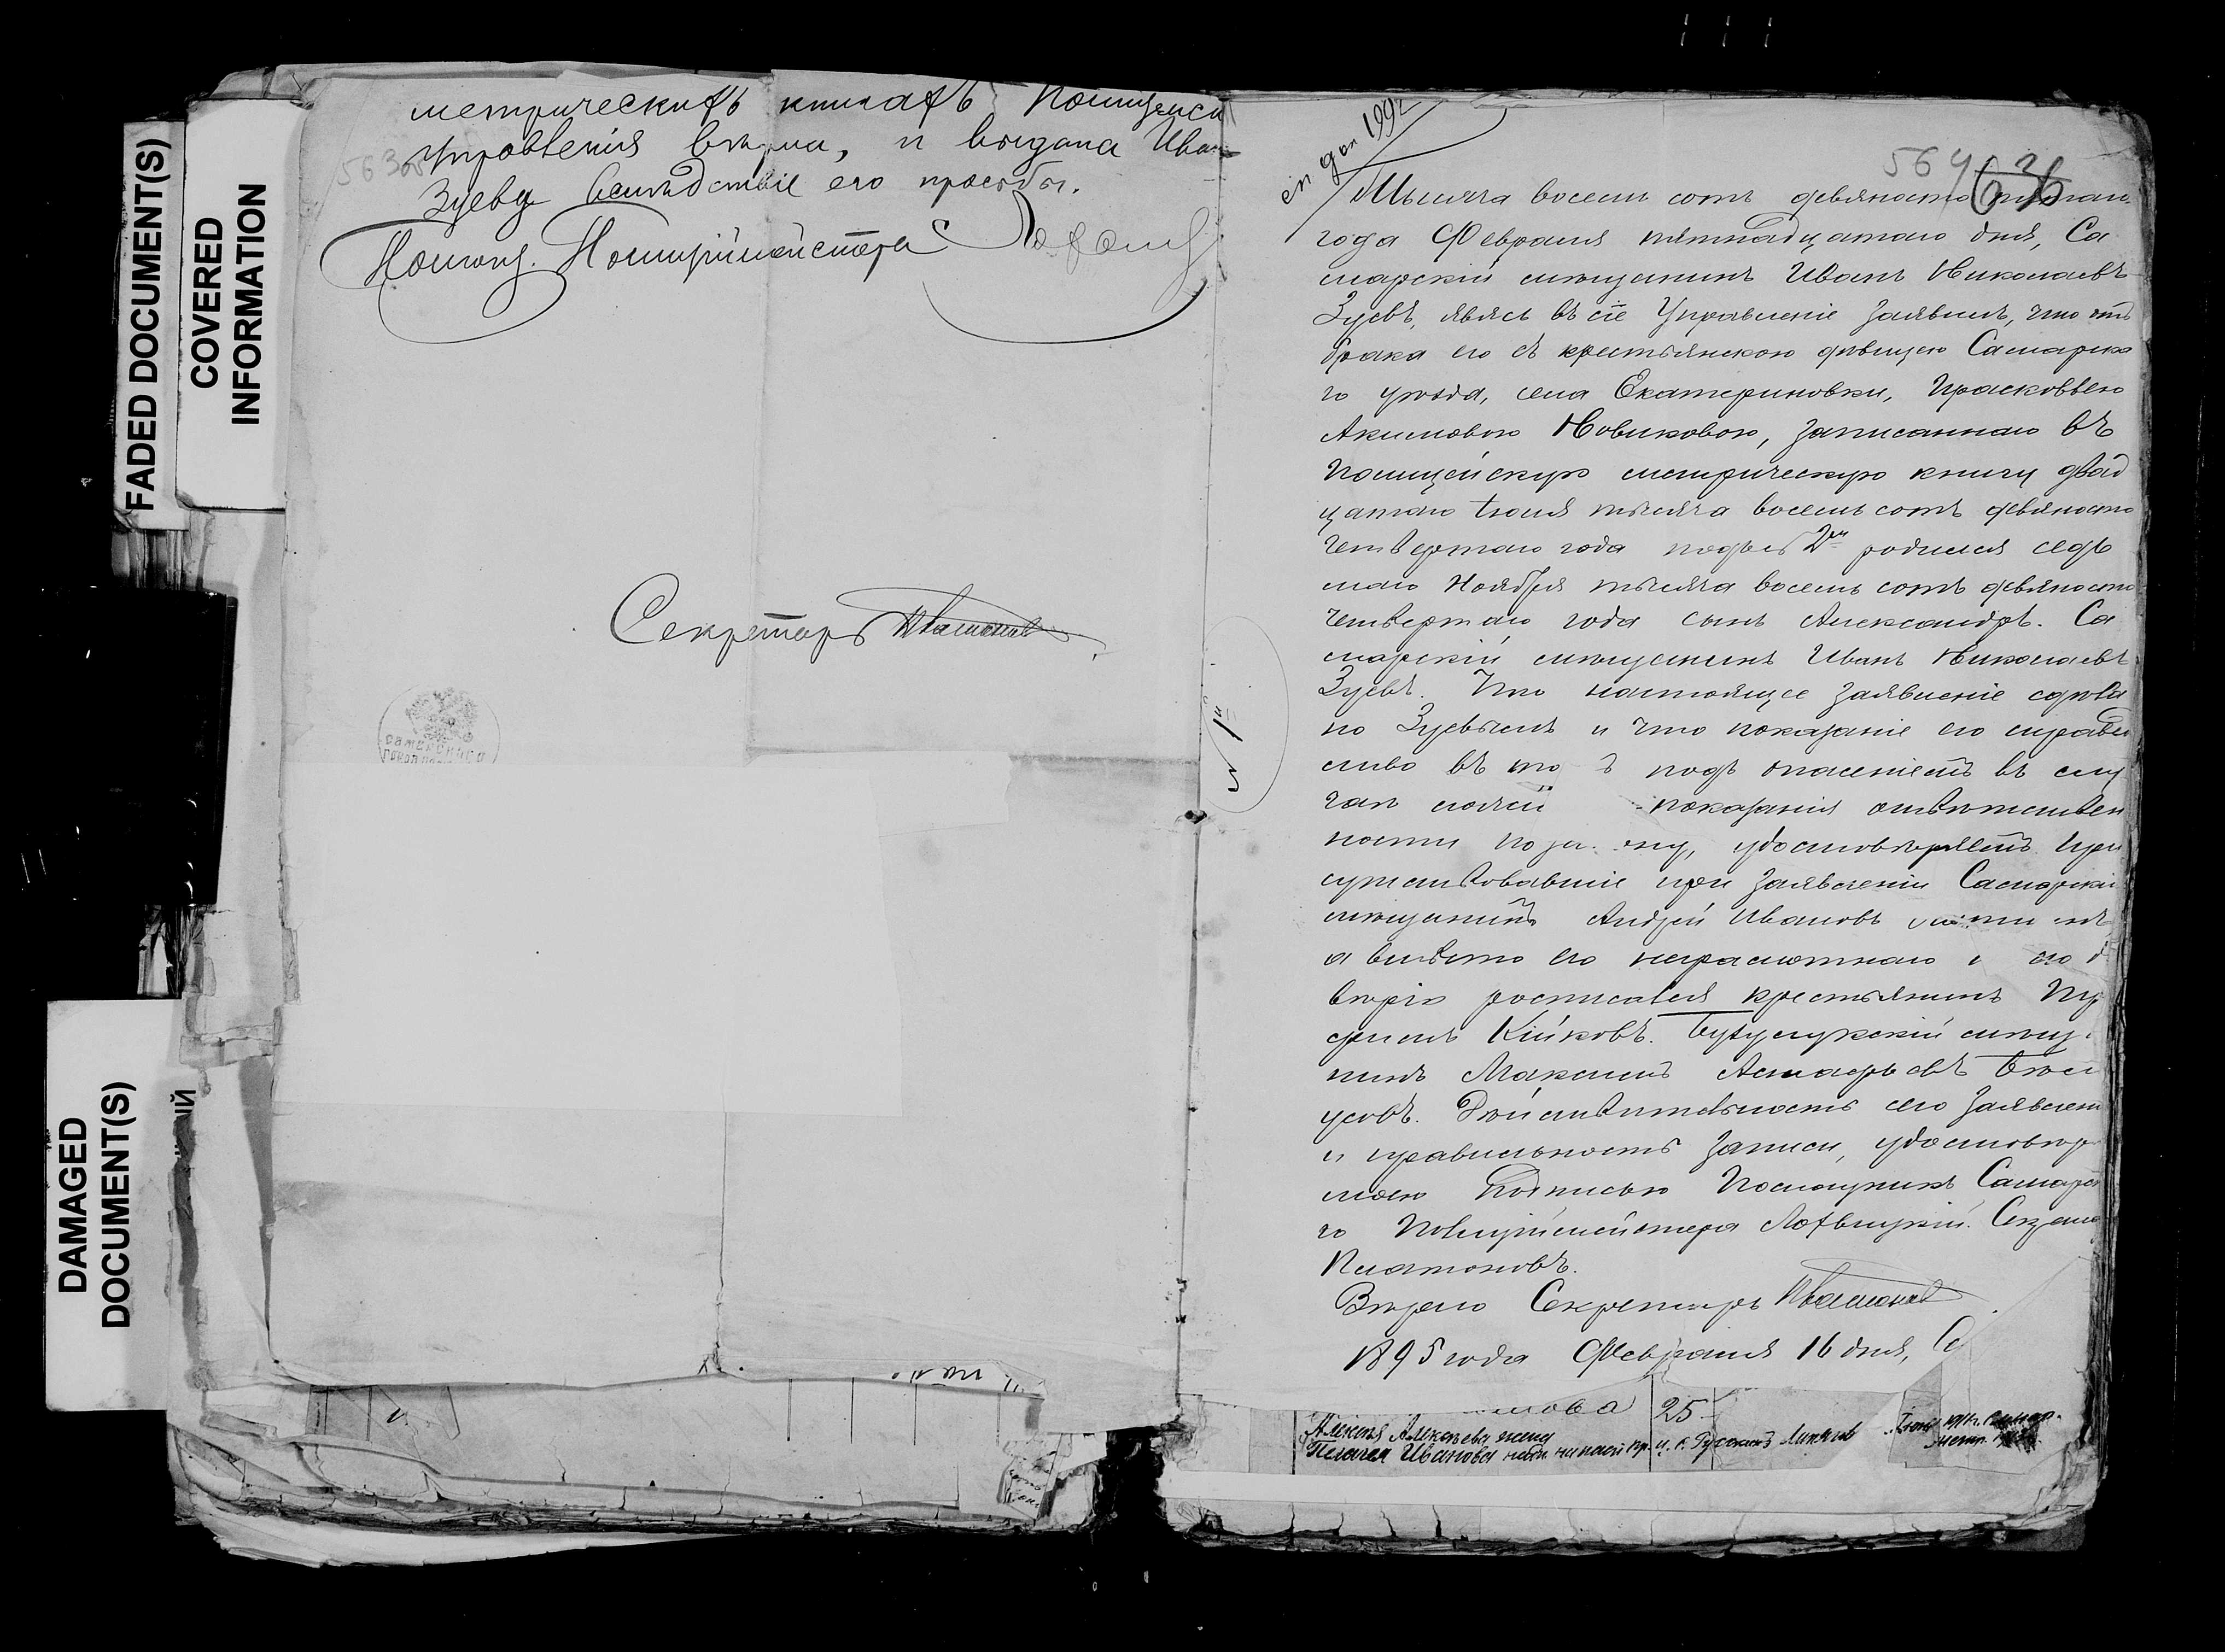 FADED DOCUMENT(S)
COVERED
INFORMATION
DAMAGED
DOCUMENT(S)
метрическихъ книгахъ Полицейск
Управленія вѣрна, и выдана Ива-
Зуеву вслѣдствіе его просьбы.
Помощ. Полиціймейстера
Секретарь Платоновъ
1992
564
Тысяча восемь сотъ девяносто пятаго
года Февраля пятнадцатаго дня, Са
марскій мѣщанинъ Иванъ Николаевъ
Зуевъ, явясь въ сіе Управленіе заявилъ, что отъ
брака его съ крестьянскою дѣвицею Самарска
го уѣзда, села Екатериновки, Прасковьею
Акимовою Новиковою, записаннаго въ
Полицейскую метрическую книгу двад
цатаго Іюля тысяча восемь сотъ девяносто
четвертаго года подъ № 2й родился седь
маго Ноября тысяча восемь сотъ девяносто
четвертаго года сынъ Александръ. Са
марскій мѣщанинъ Иванъ Николаевъ
Зуевъ. Что настоящее заявленіе сдѣла
но Зуевымъ и что показаніе его справед
ливо въ подъ опасеніемъ въ слу
чаѣ показанія отвѣтствен
ности по удостовѣряемъ при
сутствовавшіе при заявленіи Самарскій
мѣщанинъ Андрей Ивановъ
а вмѣсто его неграмотнаго его
вѣрію росписался крестьянинъ
Кійковъ. Бузулукскій мѣща
нинъ Максимъ
усовъ. Дѣйствительность сего заявлен
и правильность записи, удостовѣр
мою подписью Помощникъ Самарс
го Полиціймейстера Лохвицкій. Секрета
Платоновъ.
Вѣрно Секретарь Платоновъ
1895 года Февраля 16 дня, С
№ 1й
25
Алексѣева жена
Пелагея Иванова